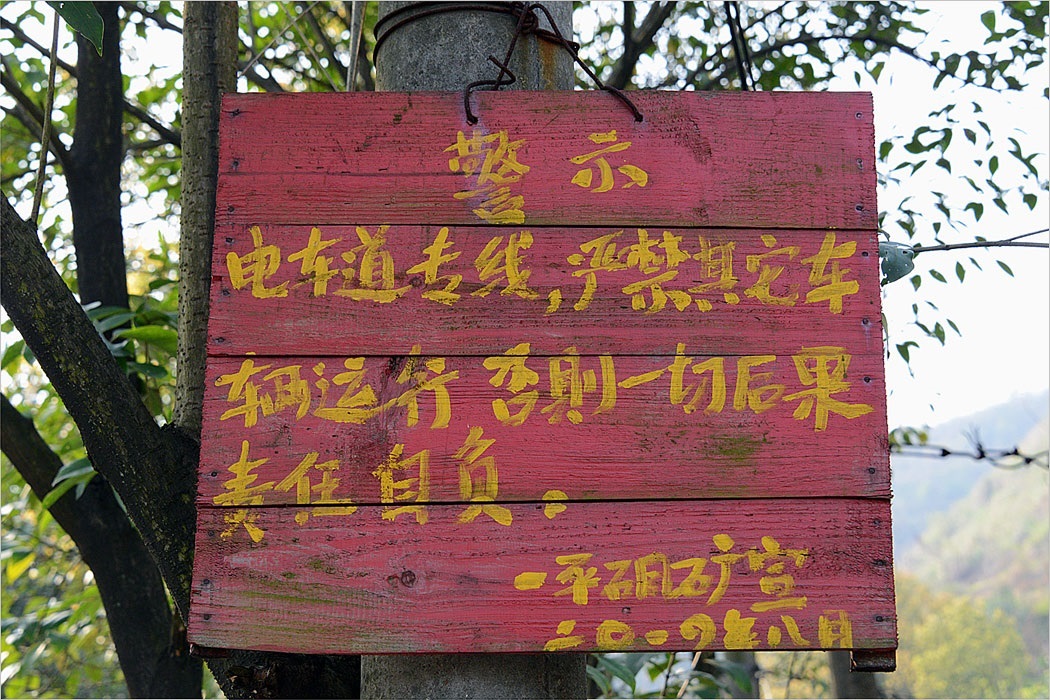 警示
电车道专线,严禁其它车
辆运行否则一切后果
责任自负。
一平硐矿宣
二〇一 年八月